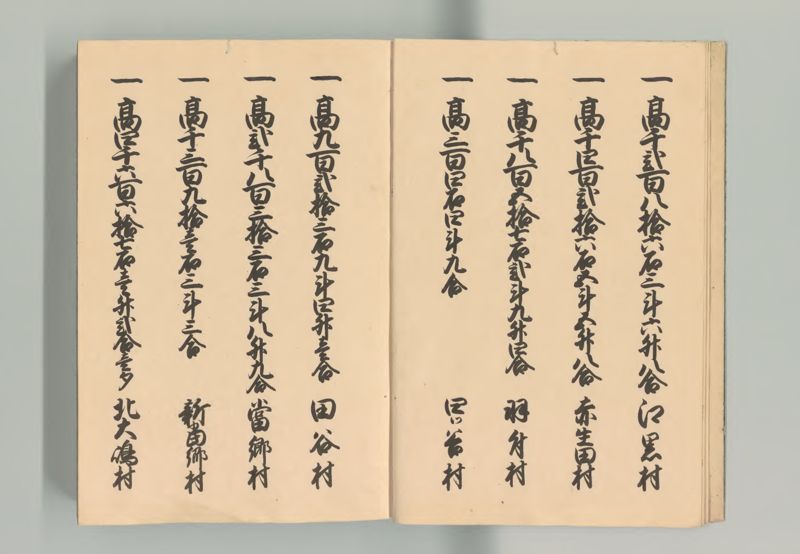 一 高千弐百八拾六石三斗六升八合 江黒村
一 高千四百弐拾六石五斗五升八合 赤生田村
一 高千八百五拾七石弐斗九升四合 羽附村
一 高三百四石四斗九合 四ツ谷村
一 高九百弐拾三石九斗四升壱合 田谷村
一 高弐千八百三拾三石三斗八升九合 當郷村
一 高千三百九拾壱石三斗三合 新當郷村
一 高四千六百六拾七石壱升弐合壱夕 北大嶋村